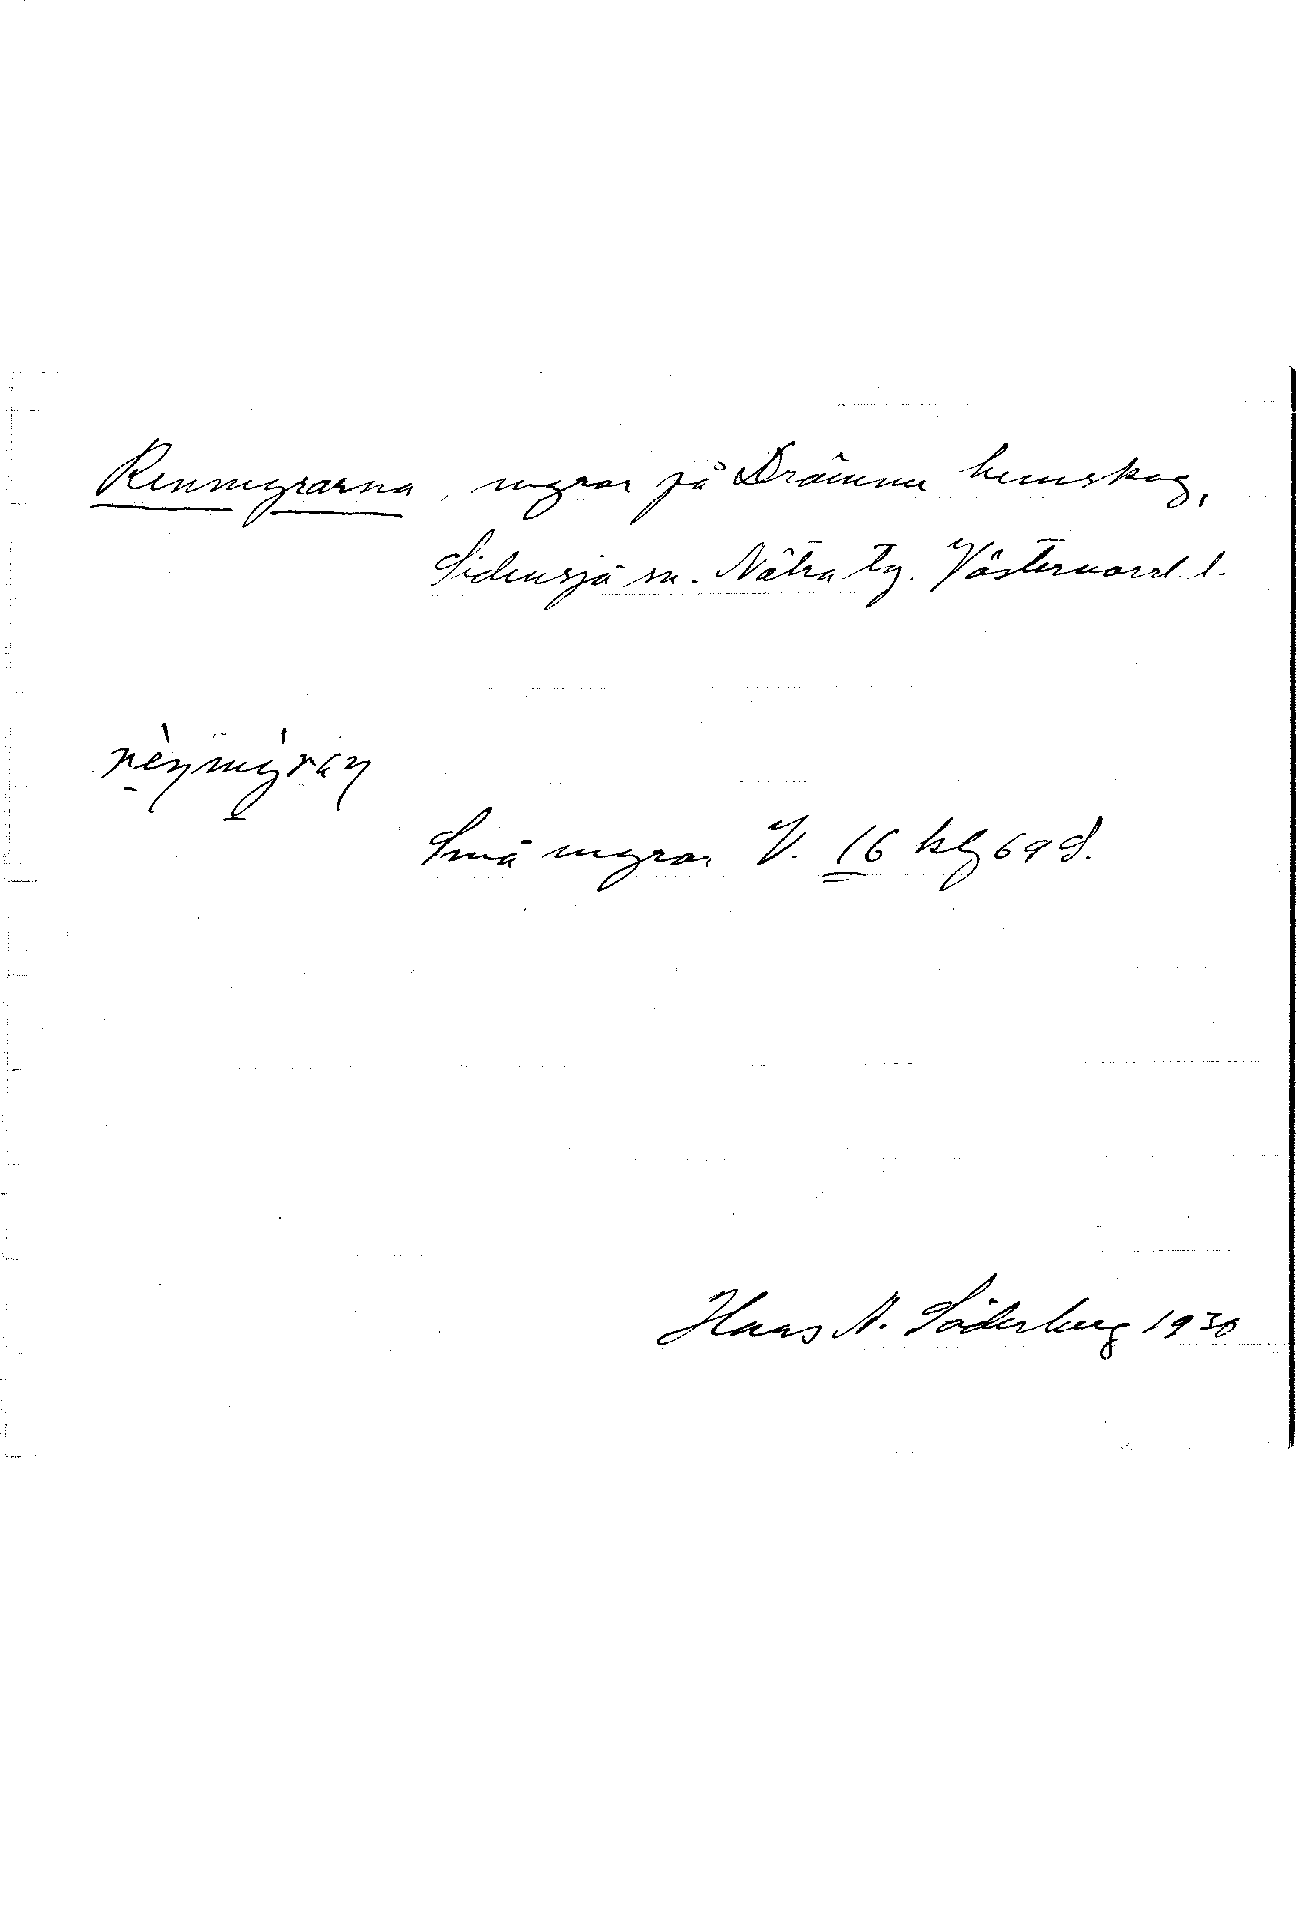 Renmyrarna, myror på Drömme hemskog,
Sidensjö sn. Nätra tg. Västernorrl. l.
Små myrar V. 16 klg 698.
Hans N. Söderberg 1930